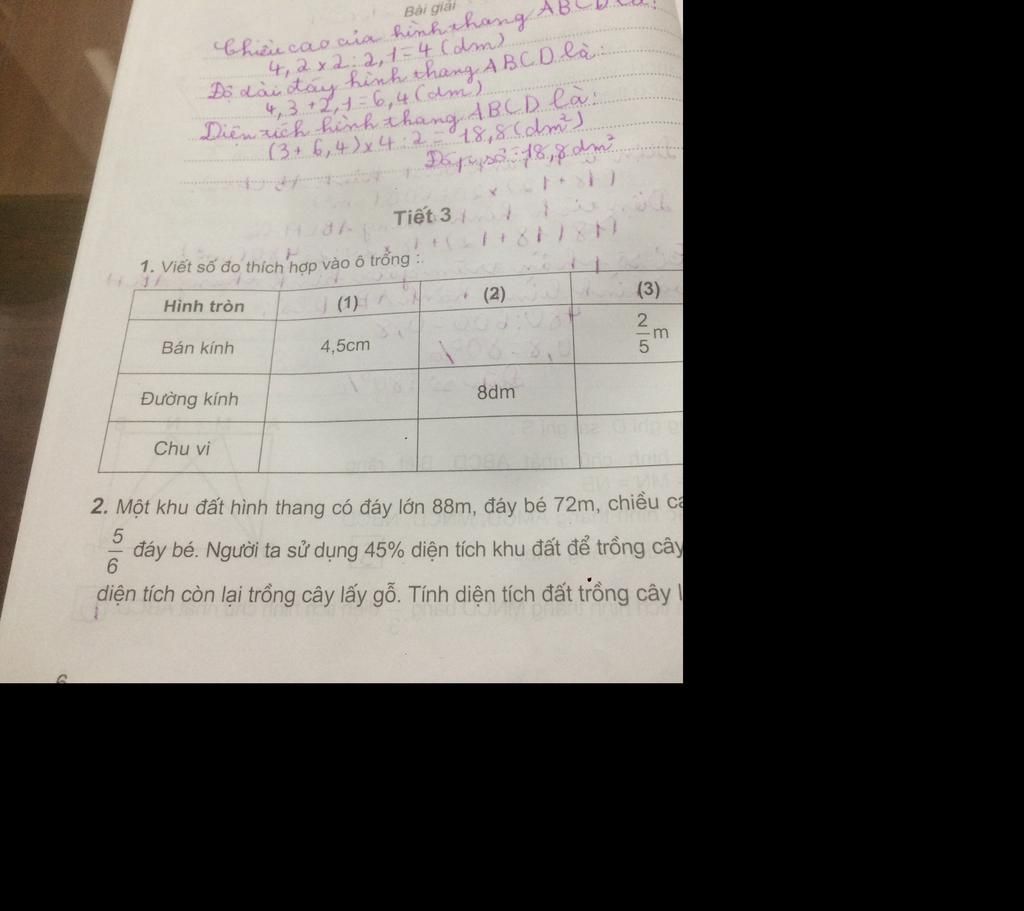 Bài giải
Chiều cao của hình thang ABCD là:
4,2 x 2 : 2,1 = 4 (dm)
Độ dài đáy hình thang ABCD là:
4,3 + 2,1 = 6,4 (dm)
Diện tích hình thang ABCD là:
(3 + 6,4) x 4 : 2 = 18,8 (dm²)
Đáp số: 18,8 dm²
Tiết 3
1. Viết số đo thích hợp vào ô trống :
Hình tròn (1) (2) (3)
Bán kính 4,5cm 2/5 m
Đường kính 8dm
Chu vi
2. Một khu đất hình thang có đáy lớn 88m, đáy bé 72m, chiều
5/6 đáy bé. Người ta sử dụng 45% diện tích khu đất để trồng cây
diện tích còn lại trồng cây lấy gỗ. Tính diện tích đất trồng cây
6